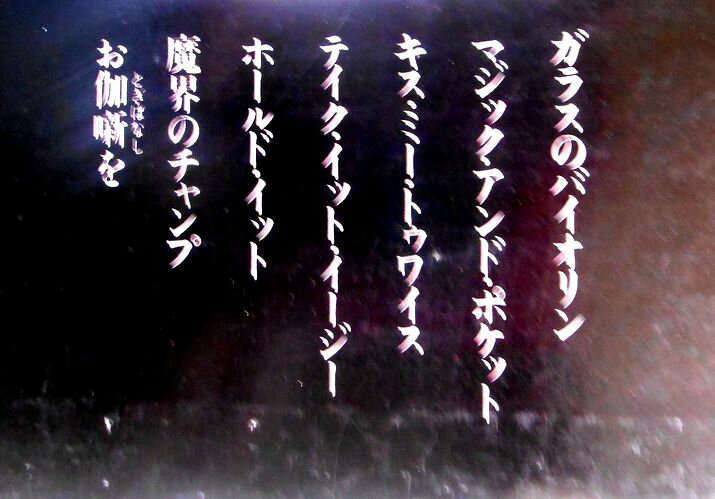 ガラスのバイオリン
マジック・アンド・ポケット
キス・ミー・トゥワイス
テイク・イット・イージー
ホールド・イット
魔界のチャンプ
お伽噺を
とぎばなし